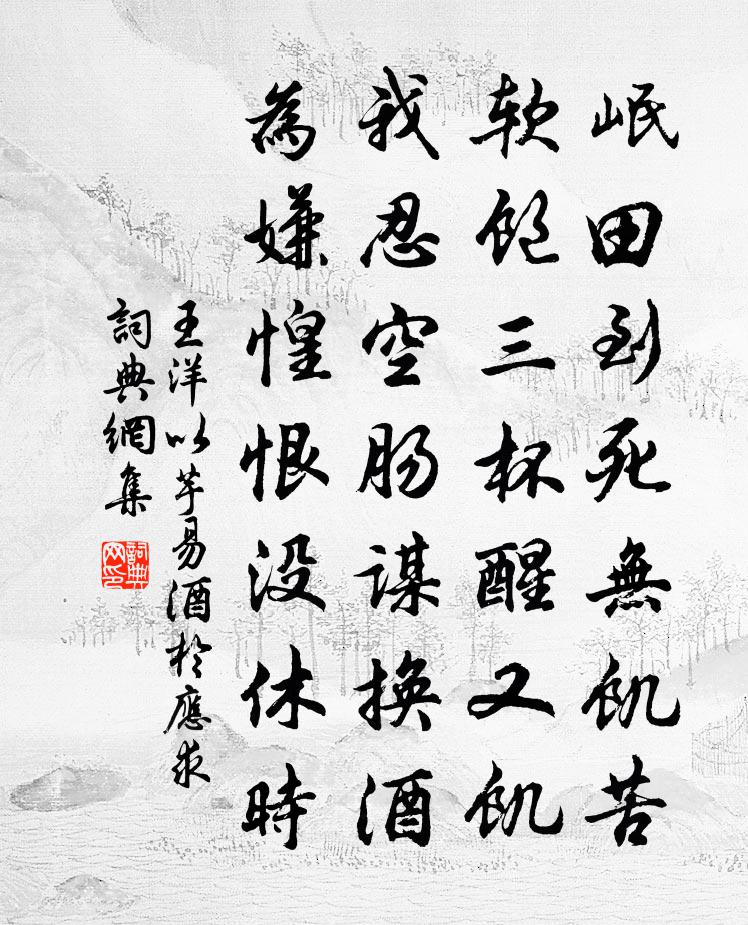 岷田到死無飢苦
軟飽三杯醒又飢
我忍空肠謀换酒
為嫌惶恨没休時
王洋以芋易酒於應求
詞典網集
詞典网印